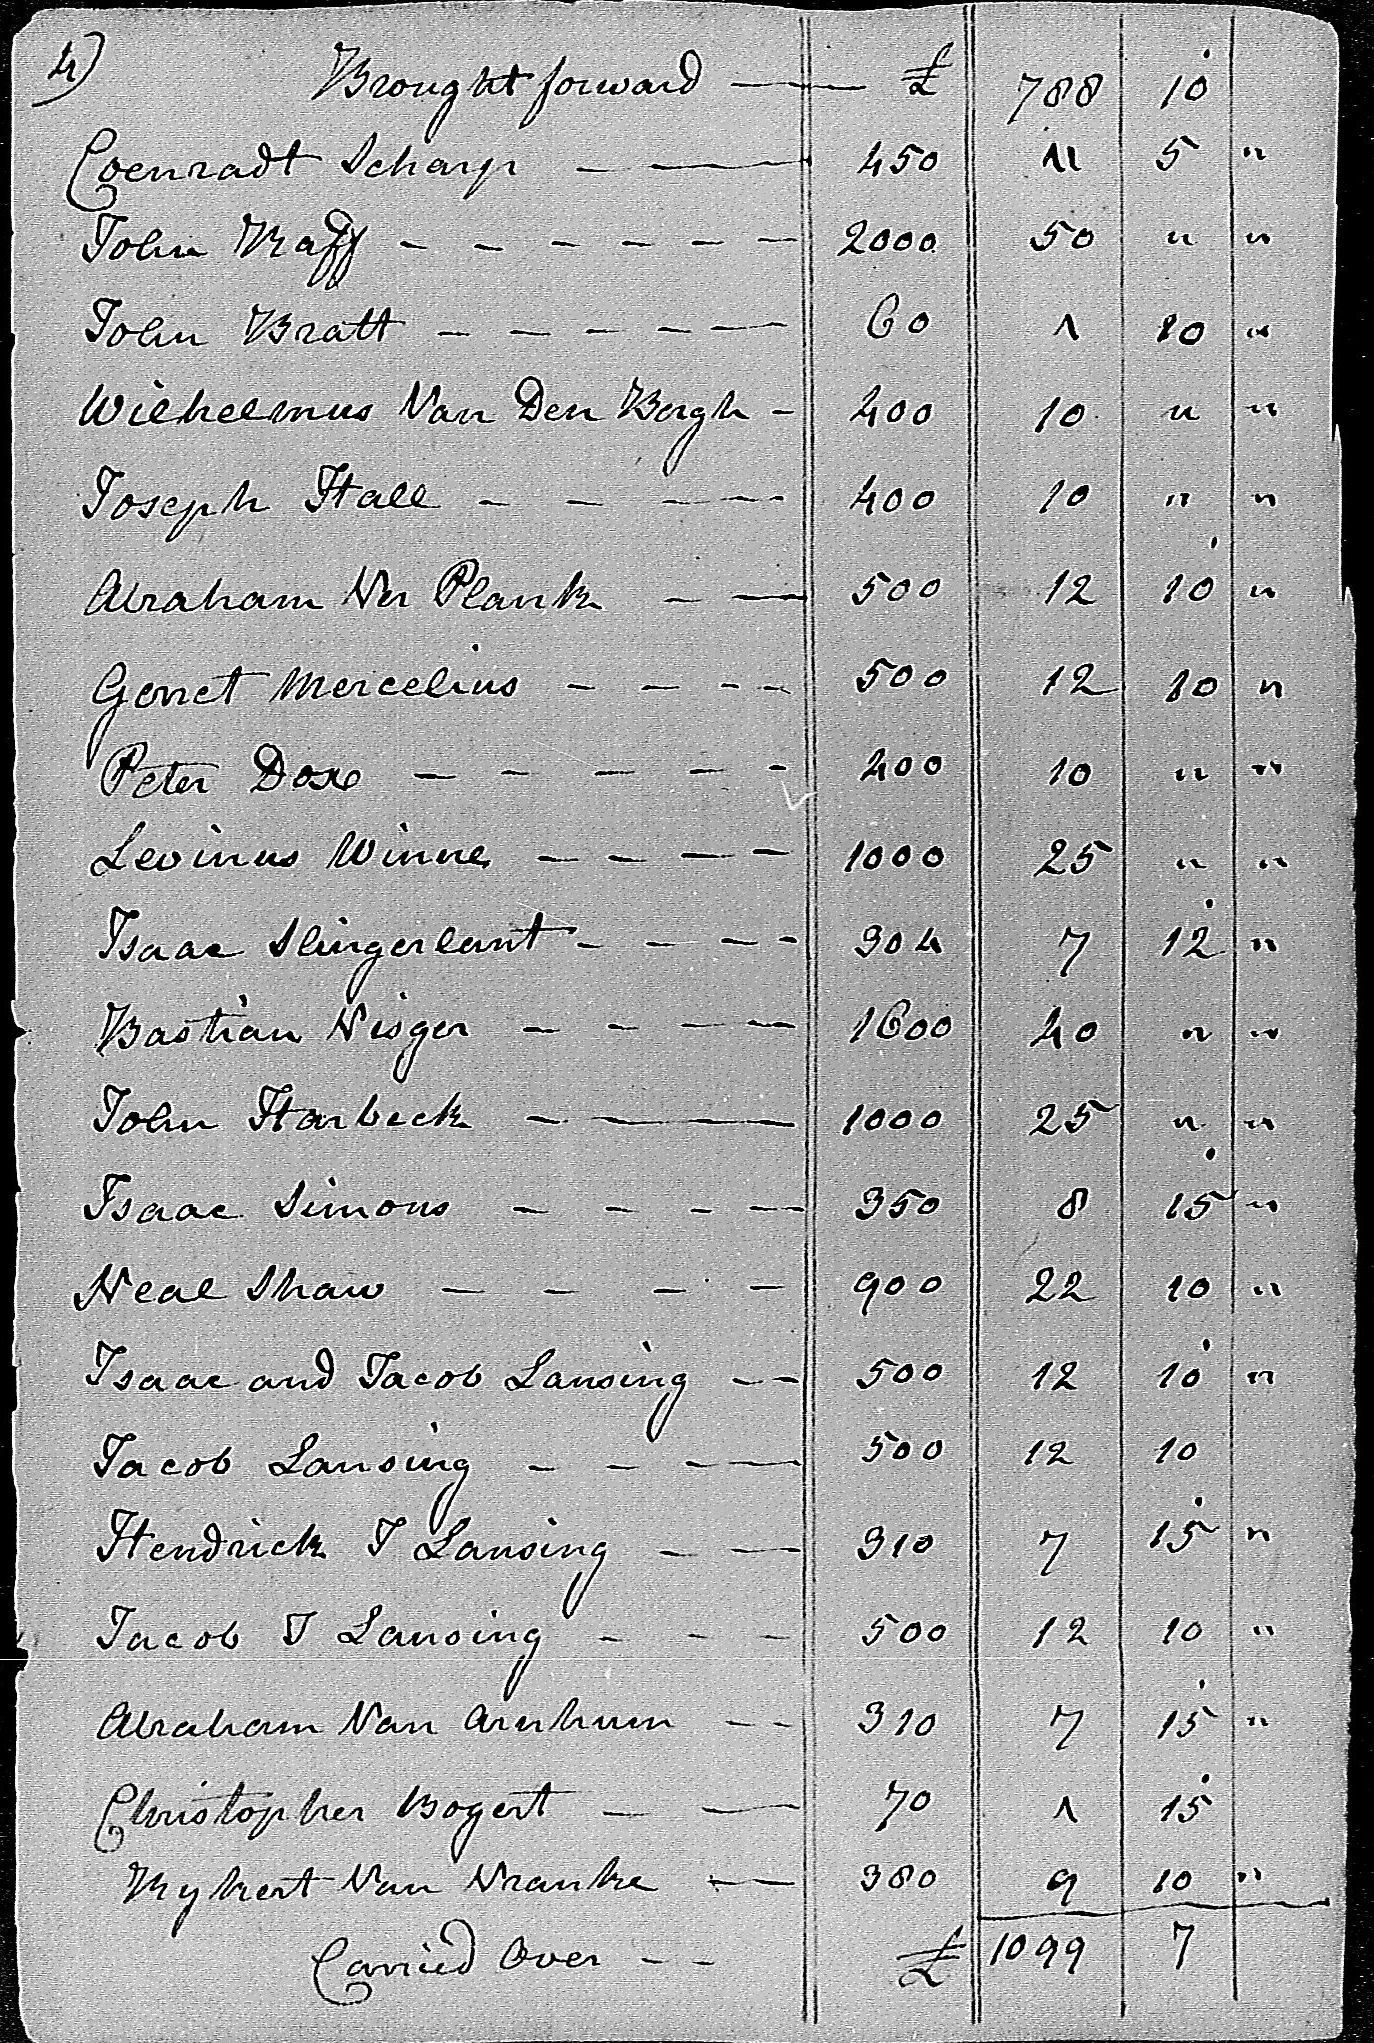 4) Brought forward — £ 788 10
Coenradt Scharp — — 450 11 5 "
John Raff - - - - - - 2000 50 " "
John Bratt - - - - - 60 1 10 "
Wilhelmus Van Den Bergh - 400 10 " "
Joseph Hall - - - - 400 10 " "
Abraham Ver Plank - — 500 12 10 "
Gerret Mercelius - - - - 500 12 10 "
Peter Doxe - - - - - 400 10 " "
Levinus Winne - - - - 1000 25 " "
Isaac Slingerlant - - - - 304 7 12 "
Bastian Visger - - - - 1600 40 " "
John Harbeck - — 1000 25 " "
Isaac Simons - - - - 350 8 15 "
Neal Shaw - - - - 900 22 10 "
Isaac and Jacob Lansing - - 500 12 10 "
Jacob Lansing - - - - 500 12 10
Hendrick J Lansing - - 310 7 15 "
Jacob J Lansing - - - 500 12 10 "
Abraham Van Arnhum - - 310 7 15 "
Christopher Bogert - — 70 1 15
Rykert Van Vranke - - 380 9 10 "
Carried Over - - £ 1099 7